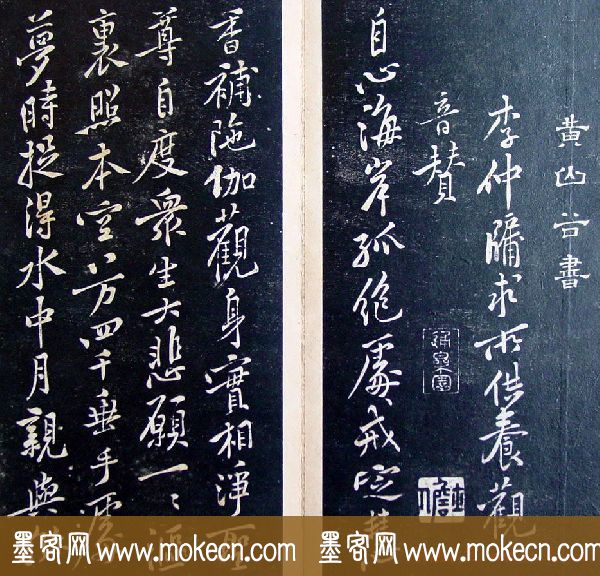 黄山谷書
李仲牖求所供養觀
音賛
自心海岸孤絶處戒定
香補陁伽觀身實相淨聖
尊自度衆生大悲願一〻漚
裏照本空八万四千垂手處
夢時捉得水中月親與
墨客网 www.mokecn.com 墨客网 www.mokecn.com